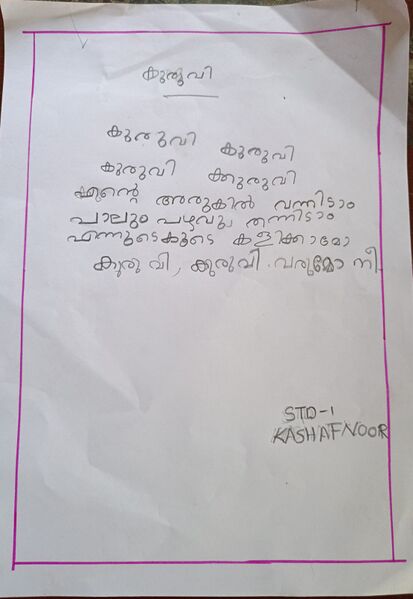 കുരുവി
കുരുവി കുരുവി
കുരുവി കുരുവി
എന്റെ അരുകിൽ വന്നിടാം
പാലും പഴവും തന്നിടാം
എന്നുടെകൂടെ കളിക്കാമോ
കുരുവി, കുരുവി. വരുമോ നീ.
STD-1
KASHAFNOOR